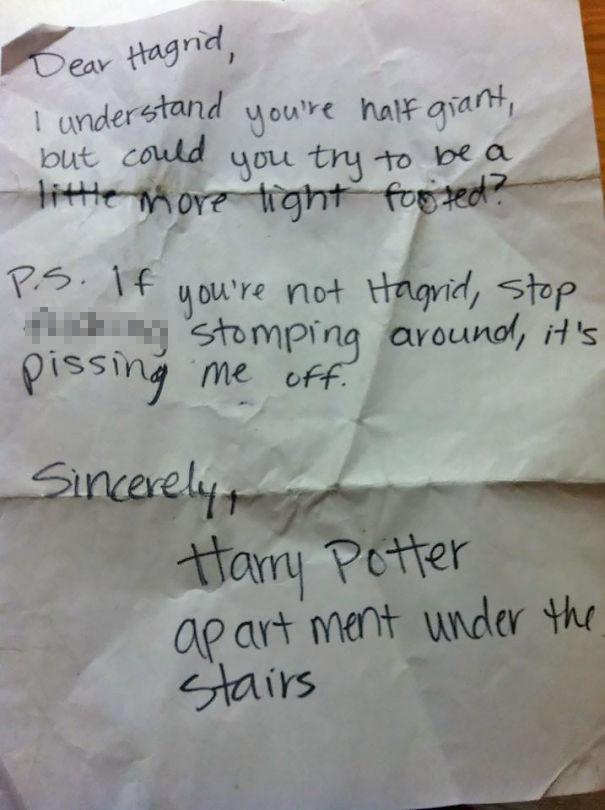 Dear Hagrid,
I understand you're half giant,
but could you try to be a
little more light footed?
P.S. If you're not Hagrid, stop
stomping around, it's
pissing me off.
Sincerely,
Harry Potter
apartment under the
stairs